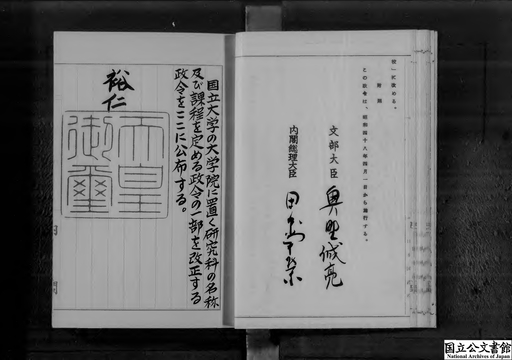 国立大学の大学院に置く研究科の名称
及び課程を定める政令の一部を改正する
政令をここに公布する。
裕仁
天皇
御璽
附則
この政令は、昭和四十八年四月一日から施行する。
文部大臣 奥野誠亮
内閣総理大臣 田中角榮
国立公文書館
National Archives of Japan